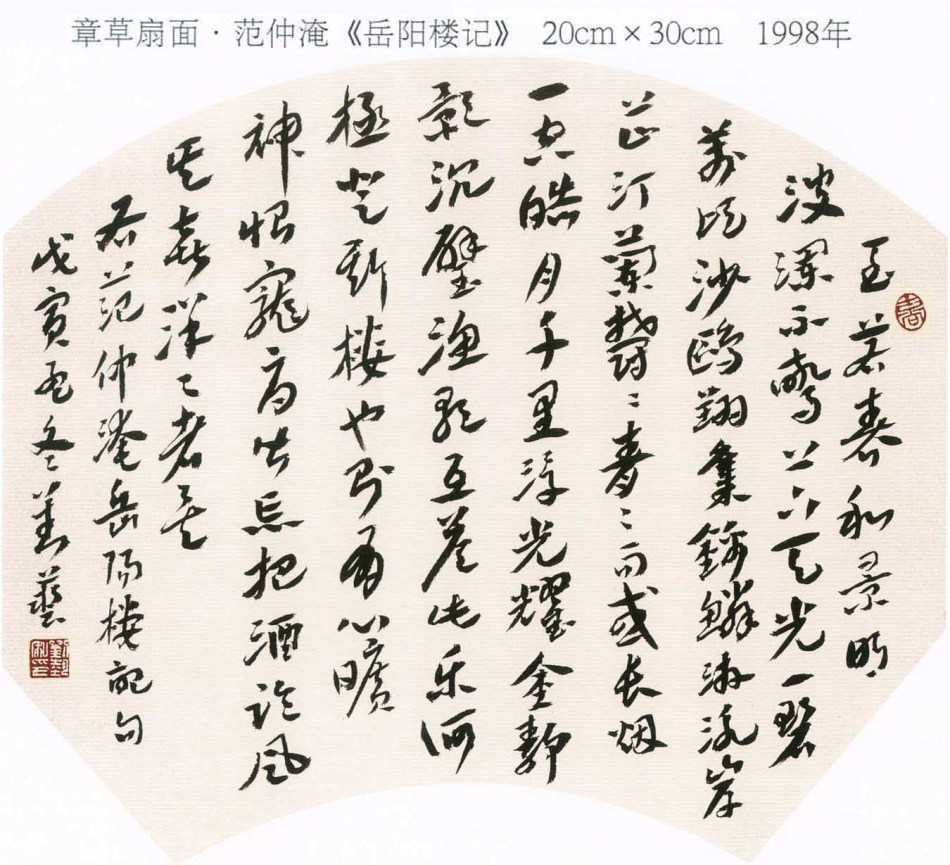 章草扇面·范仲淹《岳阳楼记》 20cm×30cm 1998年
至若春和景明
波瀾不驚上下天光一碧
萬頃沙鷗翔集錦鱗游泳岸
芷汀蘭鬱々青々而或長烟
一空皓月千里浮光耀金靜
影沉璧漁歌互答此乐何
極登斯樓也則有心曠
神怡寵辱皆忘把酒臨風
其喜洋々者矣
右范仲淹岳陽樓記句
戊寅孟冬